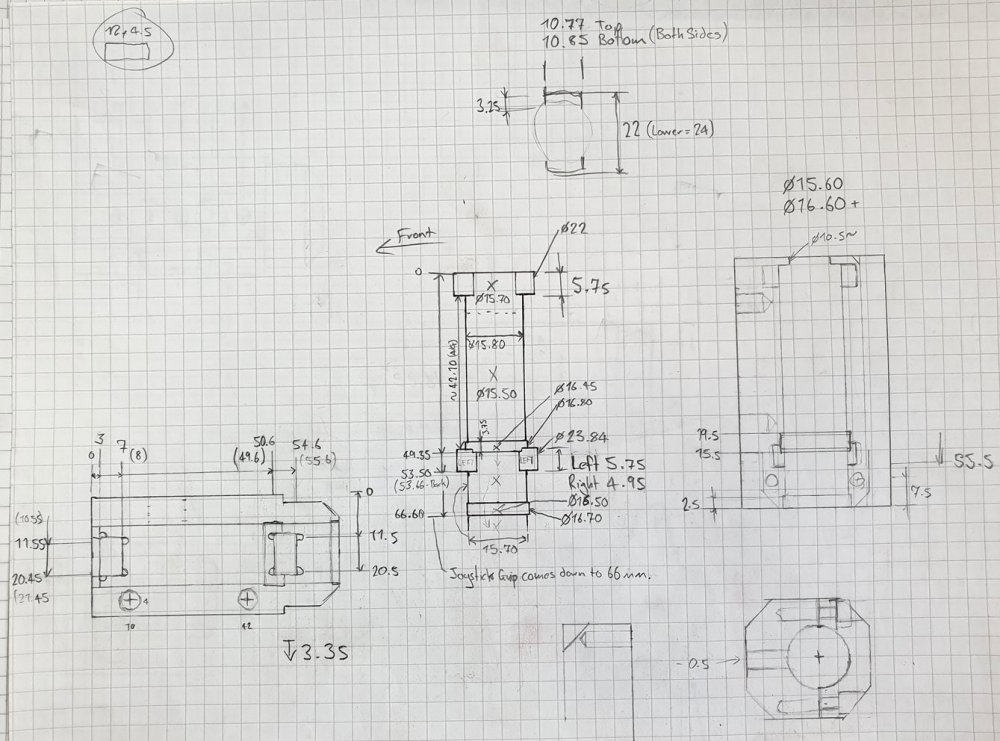 10.77 Top
10.85 Bottom (Both Sides)
3.25
22 (Lower = 24)
Ø15.60
Ø16.60 +
Ø10.5~
Front
Ø22
0
5.75
X
Ø15.70
Ø15.80
X
Ø15.50
3.75
Ø16.45
Ø16.80
Ø23.84
49.35
53.50
66.60
LEFT
LEFT
Left 5.75
Right 4.95
Ø15.50
Ø16.70
15.70
Joystick Grip comes down to 66 mm.
0
3
7
(8)
50.6
(49.6)
54.6
(55.6)
0
11.55
20.45
11.5
20.5
4
10
42
↓ 3.35
19.5
15.5
2.5
7.5
55.5
-0.5